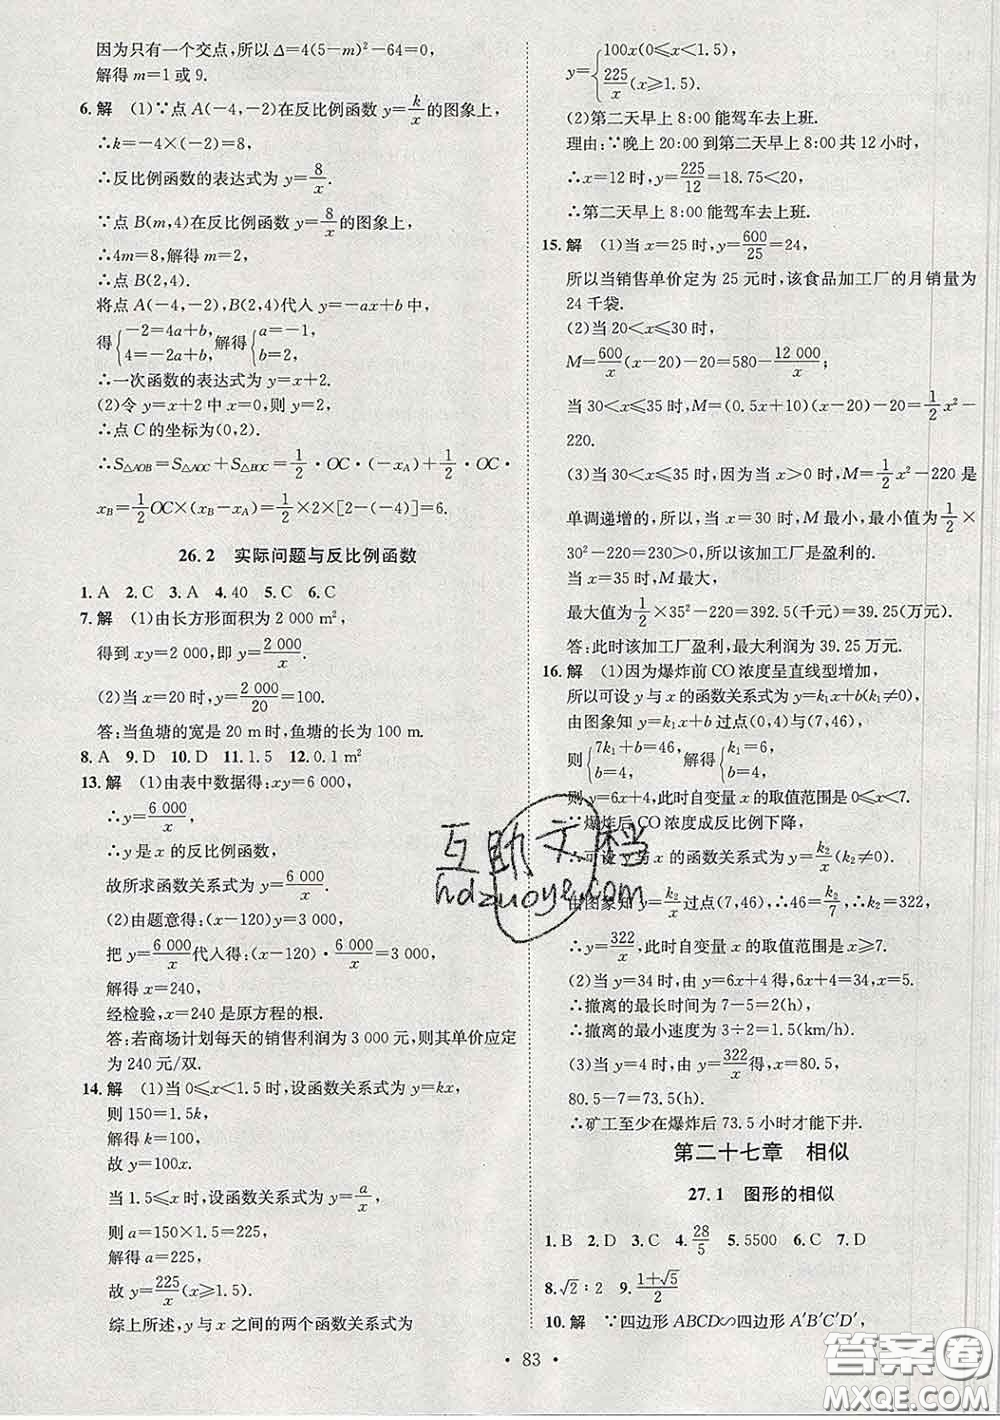 因为只有一个交点,所以 Δ=4(5−m)²−64=0,
解得 m=1 或 9.
6.解 (1)∵点 A(−4,−2)在反比例函数 y=k/x 的图象上,
∴k=−4×(−2)=8,
∴反比例函数的表达式为 y=8/x.
∵点 B(m,4)在反比例函数 y=8/x 的图象上,
∴4m=8,解得 m=2,
∴点 B(2,4).
将点 A(−4,−2),B(2,4)代入 y=−ax+b 中,
得{−2=4a+b, 4=−2a+b,解得{a=−1, b=2,
∴一次函数的表达式为 y=x+2.
(2)令 y=x+2 中 x=0,则 y=2,
∴点 C 的坐标为(0,2).
∴S△AOB=S△AOC+S△BOC=1/2·OC·(−xA)+1/2·OC·
xB=1/2 OC×(xB−xA)=1/2×2×[2−(−4)]=6.
26.2 实际问题与反比例函数
1.A 2.C 3.A 4.40 5.C 6.C
7.解 (1)由长方形面积为 2 000 m²,
得到 xy=2 000,即 y=2 000/x.
(2)当 x=20 时,y=2 000/20=100.
答:当鱼塘的宽是 20 m 时,鱼塘的长为 100 m.
8.A 9.D 10.D 11.1.5 12.0.1 m²
13.解 (1)由表中数据得:xy=6 000,
∴y=6 000/x,
∴y 是 x 的反比例函数,
故所求函数关系式为 y=6 000/x.
(2)由题意得:(x−120)y=3 000,
把 y=6 000/x 代入得:(x−120)·6 000/x=3 000,
解得 x=240,
经检验,x=240 是原方程的根.
答:若商场计划每天的销售利润为 3 000 元,则其单价应定
为 240 元/双.
14.解 (1)当 0≤x<1.5 时,设函数关系式为 y=kx,
则 150=1.5k,
解得 k=100,
故 y=100x.
当 1.5≤x 时,设函数关系式为 y=a/x,
则 a=150×1.5=225,
解得 a=225,
故 y=225/x(x≥1.5).
综上所述,y 与 x 之间的两个函数关系式为
y={100x(0≤x<1.5), 225/x(x≥1.5).
(2)第二天早上 8:00 能驾车去上班.
理由:∵晚上 20:00 到第二天早上 8:00 共 12 小时,
∴x=12 时,y=225/12=18.75<20,
∴第二天早上 8:00 能驾车去上班.
15.解 (1)当 x=25 时,y=600/25=24,
所以当销售单价定为 25 元时,该食品加工厂的月销量为
24 千袋.
(2)当 20<x≤30 时,
M=600/x(x−20)−20=580−12 000/x;
当 30<x≤35 时,M=(0.5x+10)(x−20)−20=1/2x²−
220.
(3)当 30<x≤35 时,因为当 x>0 时,M=1/2x²−220 是
单调递增的,所以当 x=30 时,M 最小,最小值为1/2×
30²−220>0,所以该加工厂是盈利的.
当 x=35 时,M 最大,
最大值为1/2×35²−220=392.5(千元)=39.25(万元).
答:此时该加工厂盈利,最大利润为 39.25 万元.
16.解 (1)因为爆炸前 CO 浓度呈直线型增加,
所以可设 y 与 x 的函数关系式为 y=k₁x+b(k₁≠0),
由图象知 y=k₁x+b 过点(0,4)与(7,46),
则{7k₁+b=46, b=4, 解得{k₁=6, b=4,
则 y=6x+4,此时自变量 x 的取值范围是 0≤x<7.
∵爆炸后 CO 浓度成反比例下降,
∴可设 y 与 x 的函数关系式为 y=k₂/x(k₂≠0).
由图象知 y=k₂/x 过点(7,46),∴46=k₂/7,∴k₂=322,
∴y=322/x,此时自变量 x 的取值范围是 x≥7.
(2)当 y=34 时,由 y=6x+4 得,6x+4=34,x=5.
∴撤离的最长时间为 7−5=2(h),
∴撤离的最小速度为 3÷2=1.5(km/h).
(3)当 y=4 时,由 y=322/x 得,x=80.5,
80.5−7=73.5(h).
∴矿工至少在爆炸后 73.5 小时才能下井.
第二十七章 相似
27.1 图形的相似
1.B 2.D 3.C 4.28/5 5.5500 6.C 7.D
8.√2∶2 9.(1+√5)/2
10.解 ∵四边形 ABCD∽四边形 A′B′C′D′,
• 83 •
互助文档
hdzuoye.com
答案圈
MXQE.COM